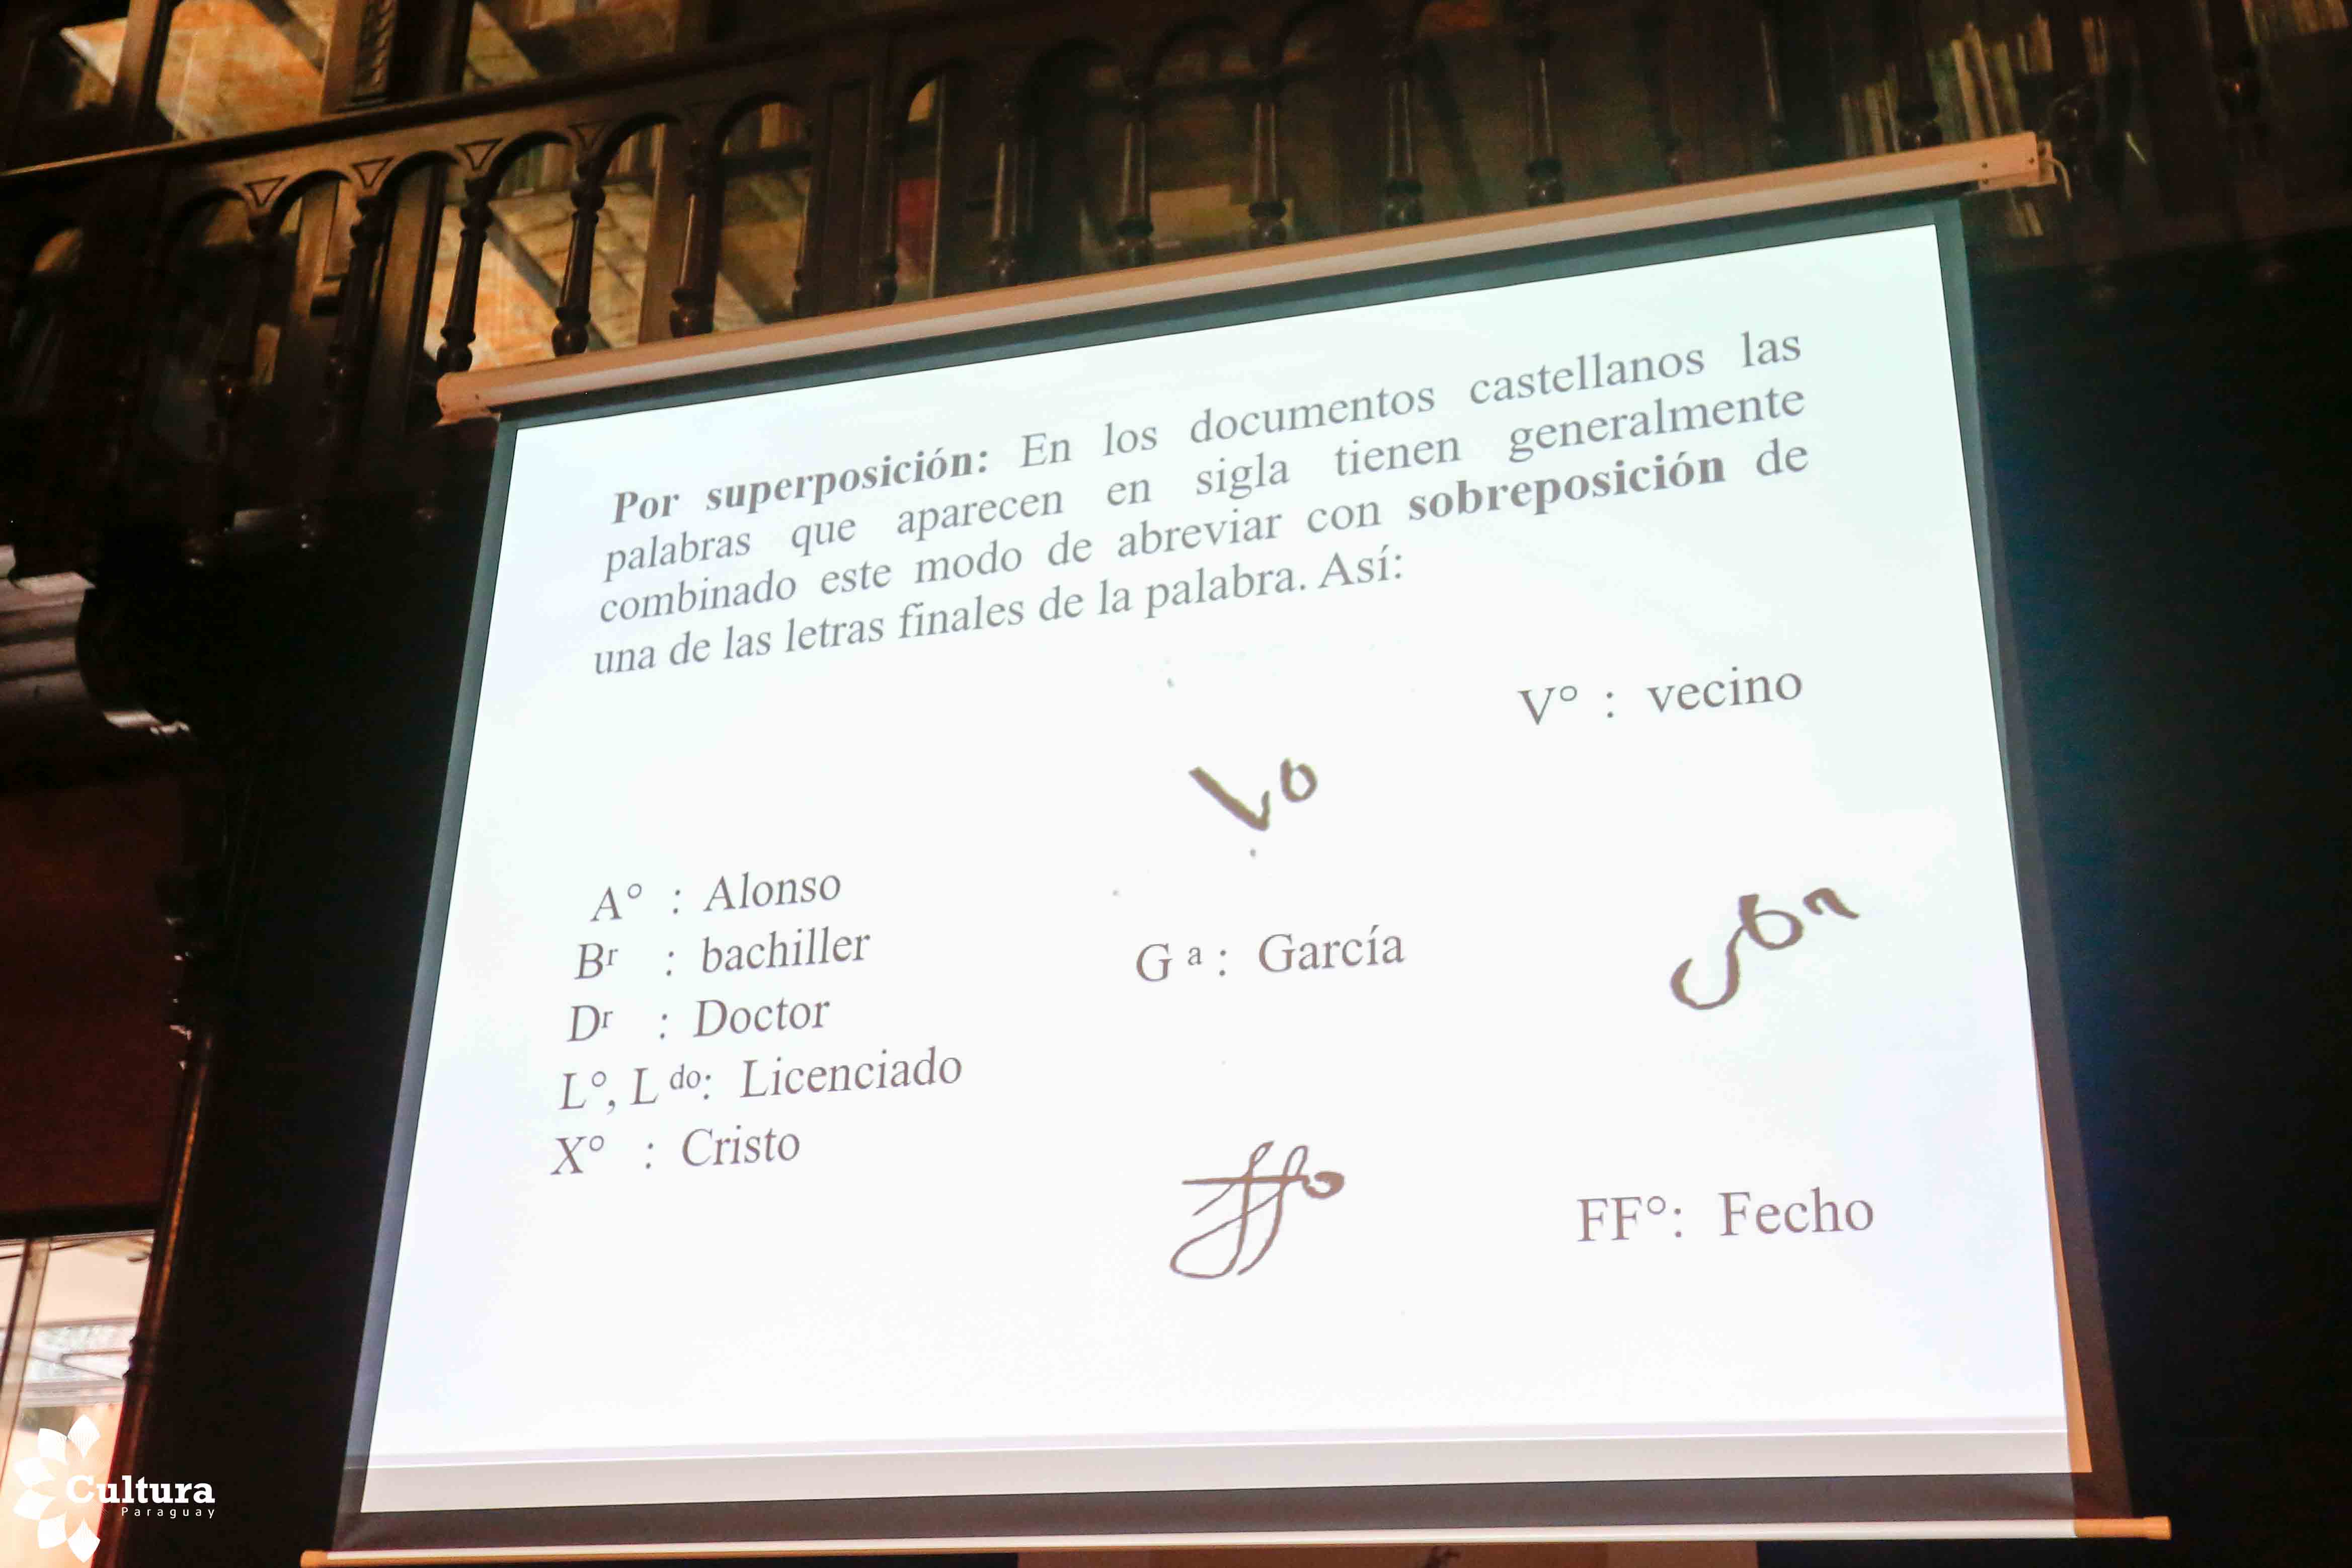 Por superposición: En los documentos castellanos las
palabras que aparecen en sigla tienen generalmente
combinado este modo de abreviar con sobreposición de
una de las letras finales de la palabra. Así:
V° : vecino
Vo
A° : Alonso
Br : bachiller
Dr : Doctor
L°, L do: Licenciado
X° : Cristo
G a : García
ffo
FF°: Fecho
Cultura
Paraguay